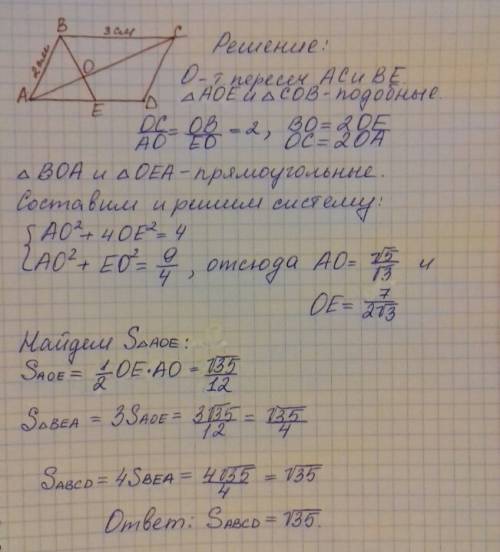 B 3см C
2см
O
A E D
Решение:
О - т. пересеч AC и BE.
△AOE и △COB - подобные.
OC/AO = OB/EO = 2, BO = 2OE
OC = 2OA
△BOA и △OEA - прямоугольные.
Составим и решим систему:
{AO² + 4OE² = 4
{AO² + EO² = 9/4, отсюда AO = √5/√3 и
OE = 7/2√3
Найдем S△AOE:
S_AOE = 1/2 OE·AO = √35/12
S△BEA = 3S_AOE = 3√35/12 = √35/4
S_ABCD = 4S_BEA = 4√35/4 = √35
Ответ: S_ABCD = √35.